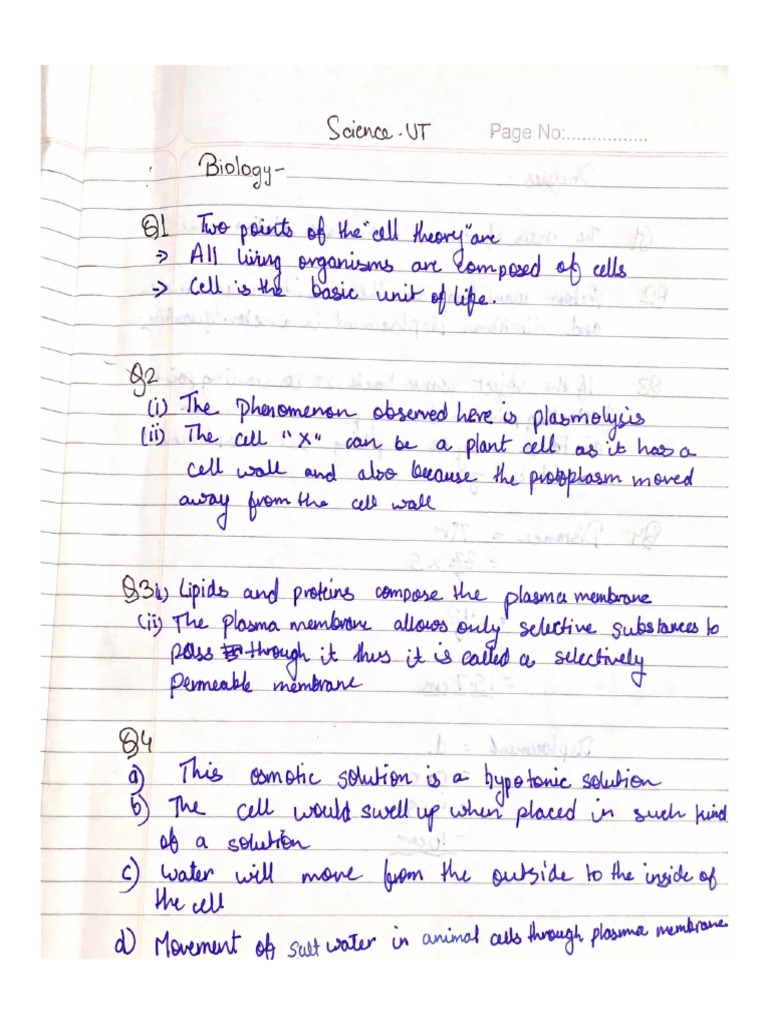 Science. UT Page No:................
Biology-
Q1 Two points of the "cell theory" are
=> All living organisms are composed of cells
=> Cell is the basic unit of life.
Q2
(i) The phenomenon observed here is plasmolysis
(ii) The cell "X" can be a plant cell as it has a
cell wall and also because the protoplasm moved
away from the cell wall
Q3 i) Lipids and proteins compose the plasma membrane
(ii) The plasma membrane allows only selective substances to
pass through it thus it is called a selectively
permeable membrane
Q4
a) This osmotic solution is a hypotonic solution
b) The cell would swell up when placed in such kind
of a solution
c) Water will move from the outside to the inside of
the cell
d) Movement of salt water in animal cells through plasma membrane